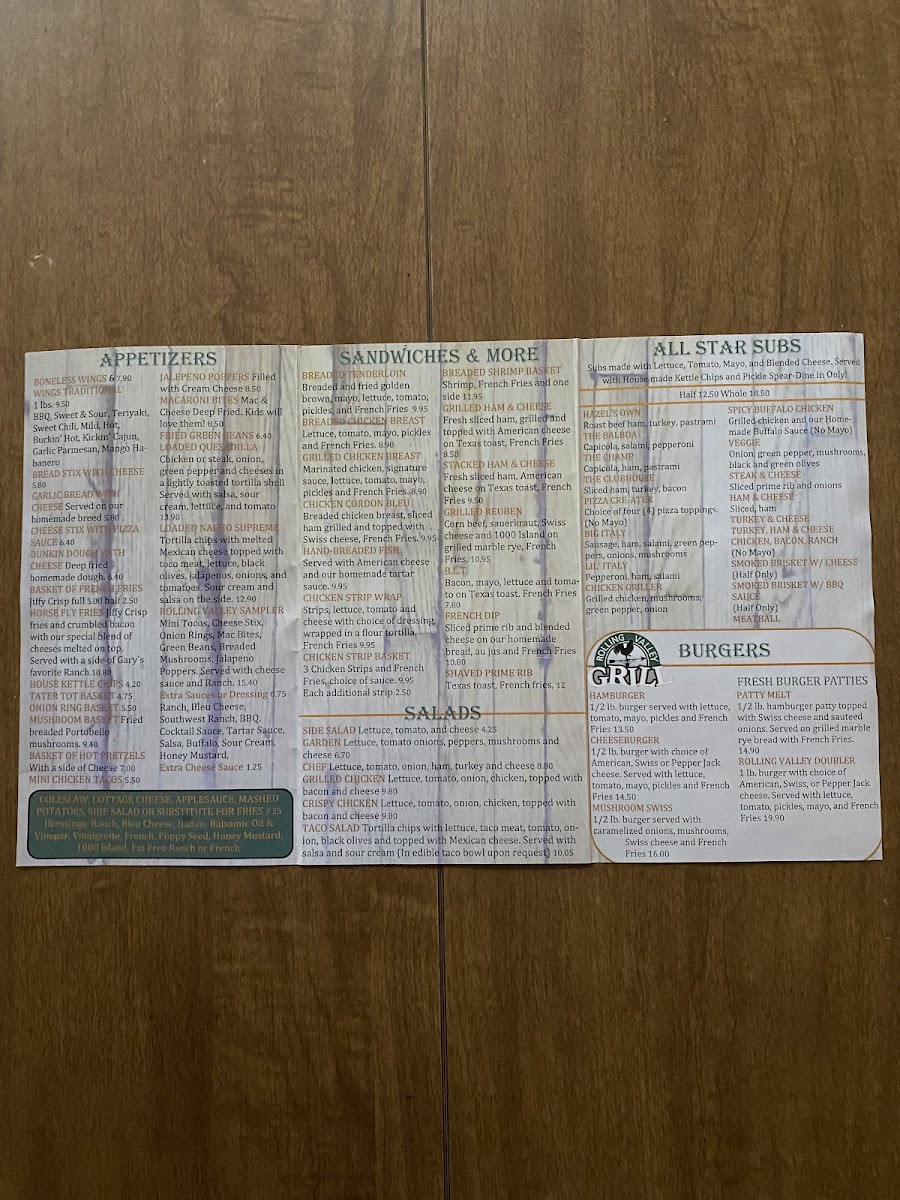 APPETIZERS
BONELESS WINGS 6 7.90
WINGS TRADITIONAL
1 lbs. 9.50
BBQ, Sweet & Sour, Teriyaki,
Sweet Chili, Mild, Hot,
Buckin' Hot, Kickin' Cajun,
Garlic Parmesan, Mango Ha-
banero
BREAD STIX WITH CHEESE
5.80
GARLIC BREAD WITH
CHEESE Served on our
homemade breed 5.80
CHEESE STIX WITH PIZZA
SAUCE 6.40
DUNKIN DOUGH WITH
CHEESE Deep fried
homemade dough. 6.40
BASKET OF FRENCH FRIES
Jiffy Crisp full 5.00 half 2.50
HORSE FLY FRIES Jiffy Crisp
fries and crumbled bacon
with our special blend of
cheeses melted on top.
Served with a side of Gary's
favorite Ranch 10.80
HOUSE KETTLE CHIPS 4.20
TATER TOT BASKET 4.75
ONION RING BASKET 5.50
MUSHROOM BASKET Fried
breaded Portobello
mushrooms. 9.40
BASKET OF HOT PRETZELS
With a side of Cheese 7.00
MINI CHICKEN TACOS 5.50
JALEPENO POPPERS Filled
with Cream Cheese 8.50
MACARONI BITES Mac &
Cheese Deep Fried. Kids will
love them! 8.50
FRIED GREEN BEANS 6.40
LOADED QUESADILLA
Chicken or steak, onion,
green pepper and cheeses in
a lightly toasted tortilla shell
Served with salsa, sour
cream, lettuce, and tomato
13.90
LOADED NACHO SUPREME
Tortilla chips with melted
Mexican cheese topped with
toco meat, lettuce, black
olives, jalapenos, onions, and
tomatoes. Sour cream and
salsa on the side. 12.90
ROLLING VALLEY SAMPLER
Mini Tocos, Cheese Stix,
Onion Rings, Mac Bites,
Green Beans, Breaded
Mushrooms, Jalapeno
Poppers. Served with cheese
sauce and Ranch. 15.40
Extra Sauces or Dressing 0.75
Ranch, Bleu Cheese,
Southwest Ranch, BBQ,
Cocktail Sauce, Tartar Sauce,
Salsa, Buffalo, Sour Cream,
Honey Mustard,
Extra Cheese Sauce 1.25
COLESLAW, COTTAGE CHEESE, APPLESAUCE, MASHED
POTATOES, SIDE SALAD OR SUBSTITUTE FOR FRIES 2.25
Dressings: Ranch, Bleu Cheese, Italian, Balsamic Oil &
Vinegar, Vinaigrette, French, Poppy Seed, Honey Mustard,
1000 Island, Fat Free Ranch or French
SANDWICHES & MORE
BREADED TENDERLOIN
Breaded and fried golden
brown, mayo, lettuce, tomato,
pickles, and French Fries 9.95
BREADED CHICKEN BREAST
Lettuce, tomato, mayo, pickles
and French Fries. 8.90
GRILLED CHICKEN BREAST
Marinated chicken, signature
sauce, lettuce, tomato, mayo,
pickles and French Fries. 8.90
CHICKEN CORDON BLEU
Breaded chicken breast, sliced
ham grilled and topped with
Swiss cheese, French Fries. 9.95
HAND-BREADED FISH
Served with American cheese
and our homemade tartar
sauce. 9.95
CHICKEN STRIP WRAP
Strips, lettuce, tomato and
cheese with choice of dressing,
wrapped in a flour tortilla,
French Fries 9.95
CHICKEN STRIP BASKET
3 Chicken Strips and French
Fries, choice of sauce. 9.95
Each additional strip 2.50
BREADED SHRIMP BASKET
Shrimp, French Fries and one
side 11.95
GRILLED HAM & CHEESE
Fresh sliced ham, grilled and
topped with American cheese
on Texas toast, French Fries
8.50
STACKED HAM & CHEESE
Fresh sliced ham, American
cheese on Texas toast, French
Fries 9.50
GRILLED REUBEN
Corn beef, sauerkraut, Swiss
cheese and 1000 Island on
grilled marble rye, French
Fries. 10.95
B.L.T.
Bacon, mayo, lettuce and toma-
to on Texas toast, French Fries
7.80
FRENCH DIP
Sliced prime rib and blended
cheese on our homemade
bread, au jus and French Fries
10.80
SHAVED PRIME RIB
Texas toast, French fries, 12
SALADS
SIDE SALAD Lettuce, tomato, and cheese 4.25
GARDEN Lettuce, tomato onions, peppers, mushrooms and
cheese 6.70
CHEF Lettuce, tomato, onion, ham, turkey and cheese 8.80
GRILLED CHICKEN Lettuce, tomato, onion, chicken, topped with
bacon and cheese 9.80
CRISPY CHICKEN Lettuce, tomato, onion, chicken, topped with
bacon and cheese 9.80
TACO SALAD Tortilla chips with lettuce, taco meat, tomato, on-
ion, black olives and topped with Mexican cheese. Served with
salsa and sour cream (In edible taco bowl upon request) 10.05
ALL STAR SUBS
Subs made with Lettuce, Tomato, Mayo, and Blended Cheese, Served
with House made Kettle Chips and Pickle Spear-Dine in Only!
Half 12.50 Whole 18.50
HAZEL'S OWN
Roast beef ham, turkey, pastrami
THE BALBOA
Capicola, salami, pepperoni
THE CHAMP
Capicola, ham, pastrami
THE CLUBHOUSE
Sliced ham, turkey, bacon
PIZZA CRE-ATER
Choice of four (4) pizza toppings.
(No Mayo)
BIG ITALY
Sausage, ham, salami, green pep-
pers, onions, mushrooms
LIL' ITALY
Pepperoni, ham, salami
CHICKEN GRILLER
Grilled chicken, mushrooms,
green pepper, onion
SPICY BUFFALO CHICKEN
Grilled chicken and our Home-
made Buffalo Sauce (No Mayo)
VEGGIE
Onion, green pepper, mushrooms,
black and green olives
STEAK & CHEESE
Sliced prime rib and onions
HAM & CHEESE
Sliced, ham
TURKEY & CHEESE
TURKEY, HAM & CHEESE
CHICKEN, BACON, RANCH
(No Mayo)
SMOKED BRISKET W/ CHEESE
(Half Only)
SMOKED BRISKET W/ BBQ
SAUCE
(Half Only)
MEATBALL
ROLLING VALLEY
GRILL
BURGERS
HAMBURGER
1/2 lb. burger served with lettuce,
tomato, mayo, pickles and French
Fries 13.50
CHEESEBURGER
1/2 lb. burger with choice of
American, Swiss or Pepper Jack
cheese. Served with lettuce,
tomato, mayo, pickles and French
Fries 14.50
MUSHROOM SWISS
1/2 lb. burger served with
caramelized onions, mushrooms,
Swiss cheese and French
Fries 16.00
FRESH BURGER PATTIES
PATTY MELT
1/2 lb. hamburger patty topped
with Swiss cheese and sauteed
onions. Served on grilled marble
rye bread with French Fries.
14.90
ROLLING VALLEY DOUBLER
1 lb. burger with choice of
American, Swiss, or Pepper Jack
cheese. Served with lettuce,
tomato, pickles, mayo, and French
Fries 19.90